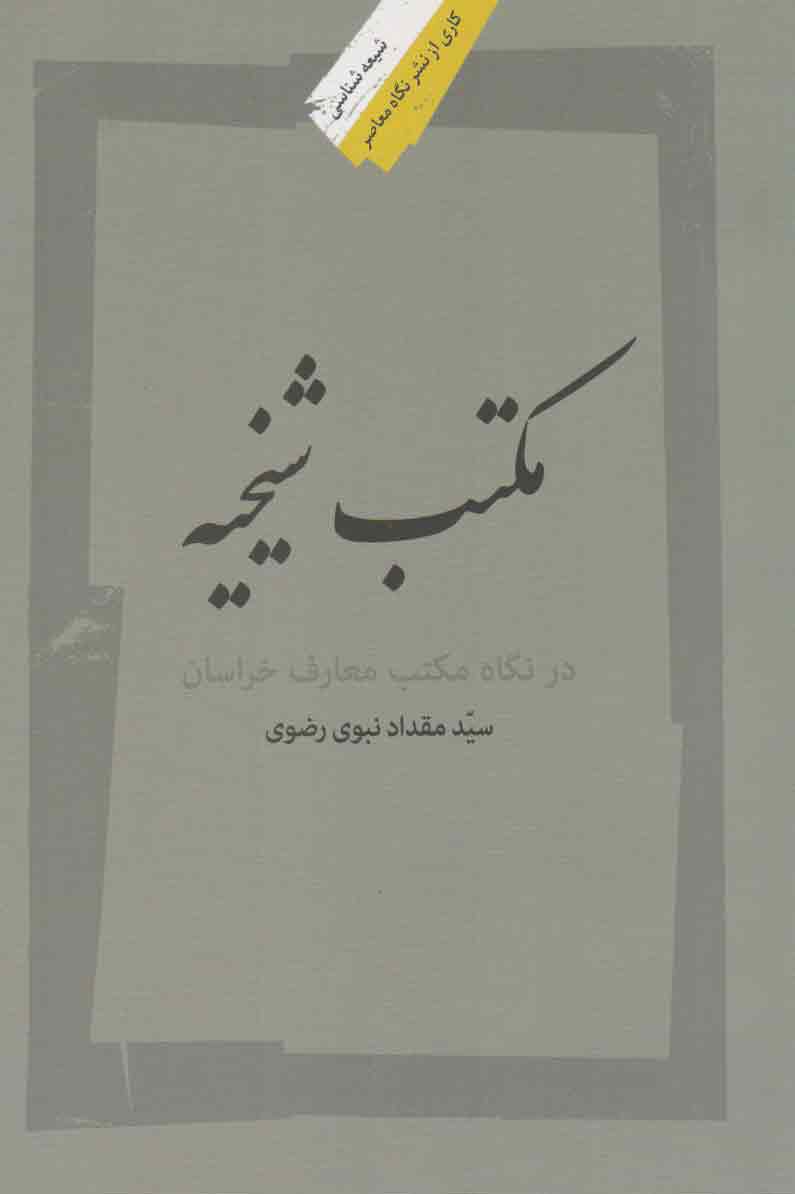 شیعه شناسی
کاری از نشر نگاه معاصر
مکتب شیخیه
در نگاه مکتب معارف خراسان
سیّد مقداد نبوی رضوی